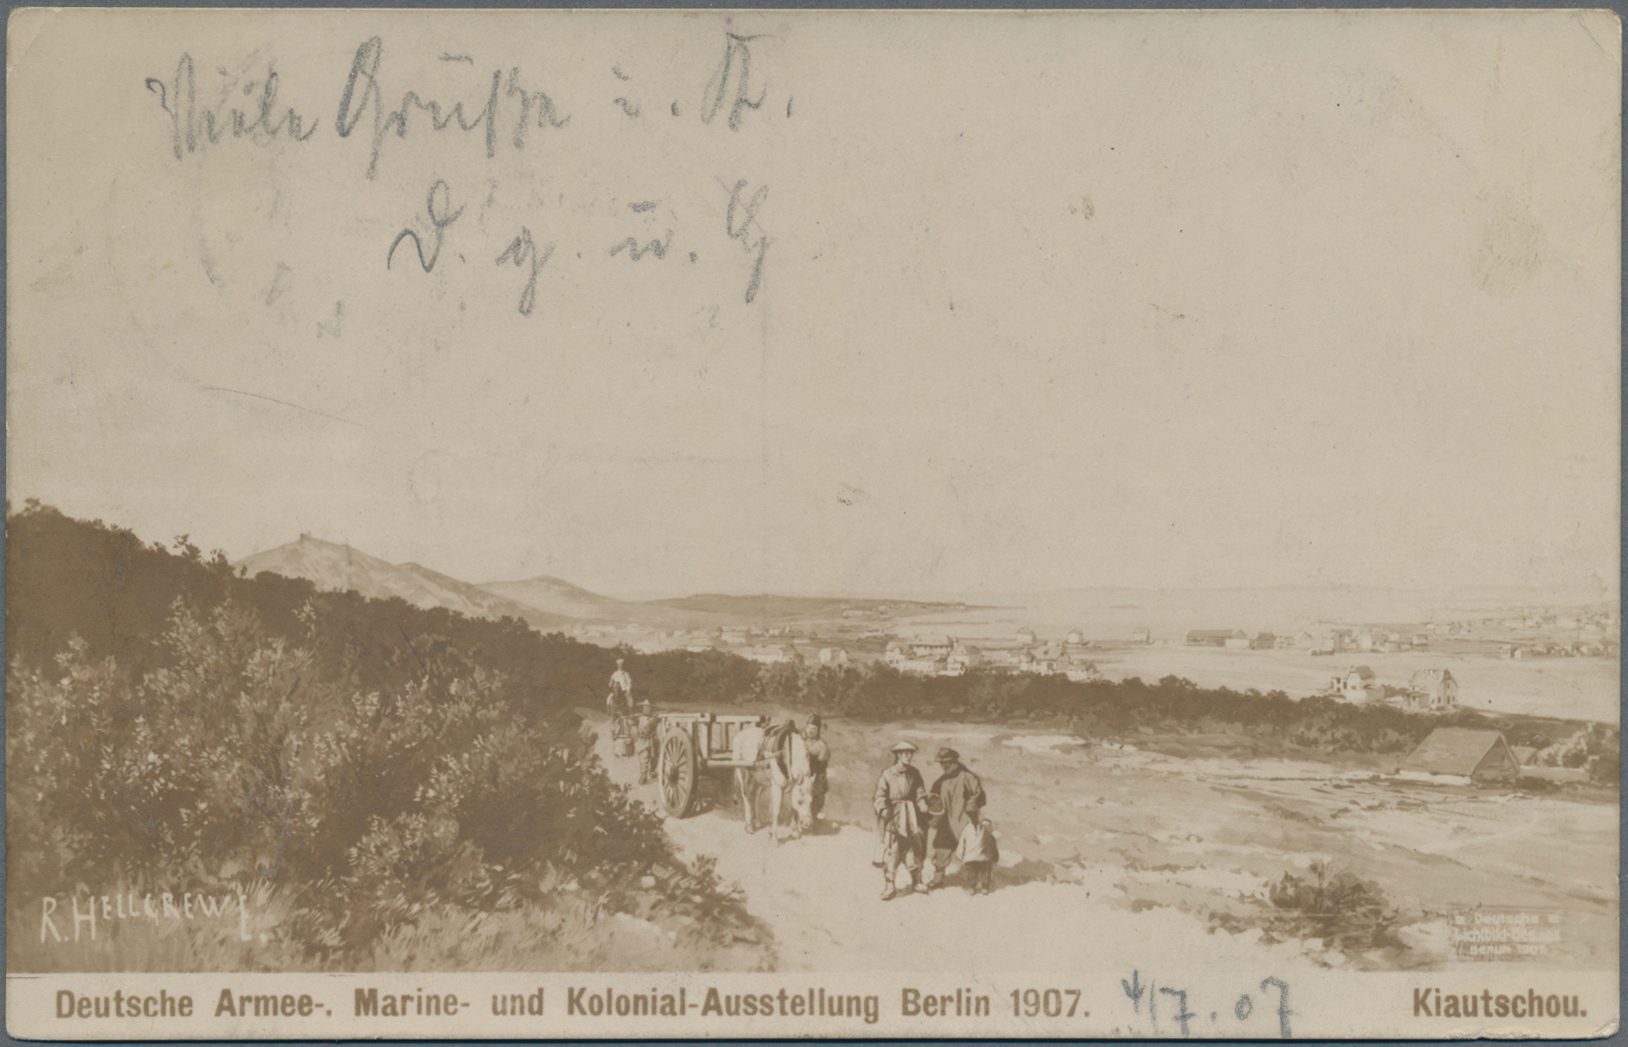 Viele Grüße u. K.
D. g. u. G
R. HELLGREWE.
Deutsche
BERLIN 1907.
Deutsche Armee-. Marine- und Kolonial-Ausstellung Berlin 1907. 4/7. 07 Kiautschou.